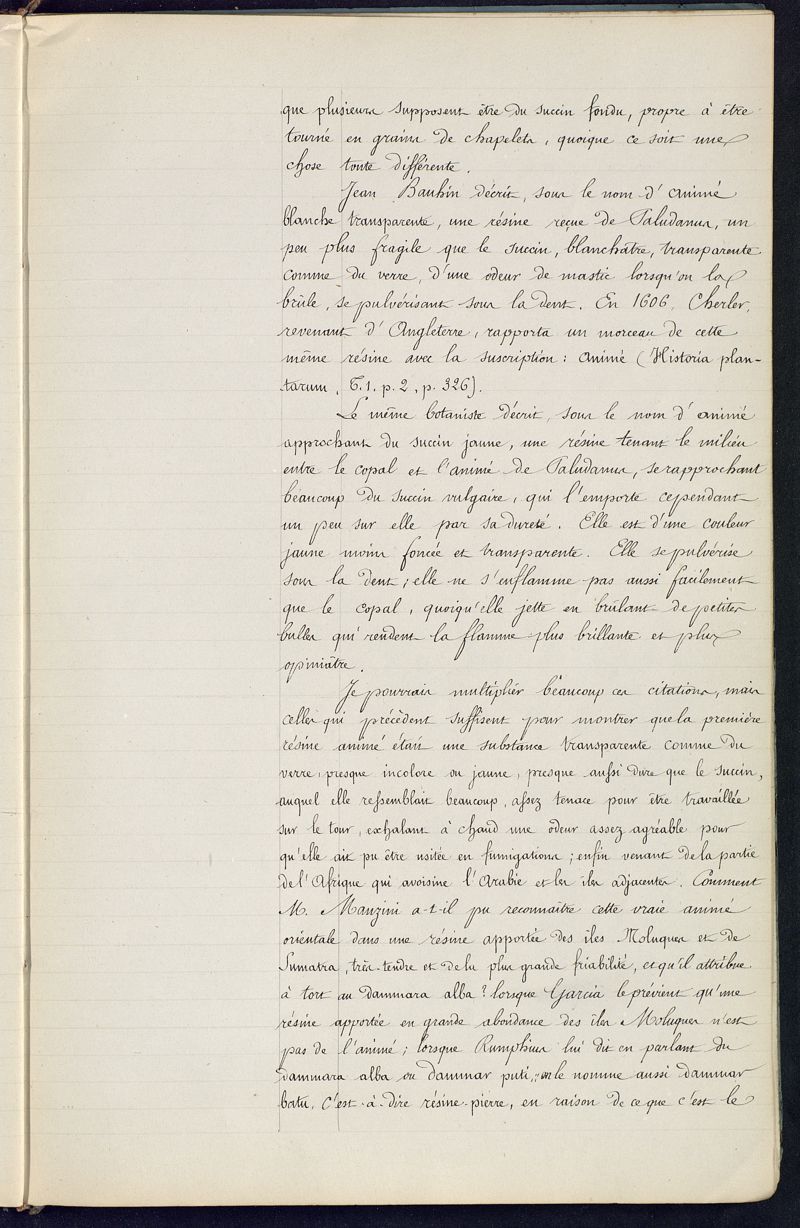 que plusieurs supposent être du succin fondu, propre à être
tourné en grains de chapelets, quoique ce soit une
chose toute différente.
Jean Bauhin décrit, sous le nom d'animé
blanche transparente, une résine reçue de Paludanus, un
peu plus fragile que le succin, blanchâtre, transparente
comme du verre, d'une odeur de mastic lorsqu'on la
brûle, se pulvérisant sous la dent. En 1606, Cherler,
revenant d'Angleterre, rapporta un morceau de cette
même résine avec la suscription: animé (Historia plan-
tarum, T.1. p.2, p. 326).
Le même botaniste décrit, sous le nom d'animé
approchant du succin jaune, une résine tenant le milieu
entre le copal et l'animé de Paludanus, se rapprochant
beaucoup du succin vulgaire, qui l'emporte cependant
un peu sur elle par sa dureté. Elle est d'une couleur
jaune moins foncée et transparente. Elle se pulvérise
sous la dent; elle ne s'enflamme pas aussi facilement
que le copal, quoiqu'elle jette en brûlant de petites
bulles qui rendent la flamme plus brillante et plus
opiniâtre.
Je pourrais multiplier beaucoup ces citations, mais
celles qui précèdent suffisent pour montrer que la première
résine animé était une substance transparente comme du
verre, presque incolore ou jaune, presque aussi dure que le succin,
auquel elle ressemblait beaucoup, assez tenace pour être travaillée
sur le tour, exhalant à chaud une odeur assez agréable pour
qu'elle ait pu être usitée en fumigations; enfin venant de la partie
de l'Afrique qui avoisine l'Arabie et les îles adjacentes. Comment
M. Manzini a-t-il pu reconnaître cette vraie animé
orientale dans une résine apportée des îles Moluques et de
Sumatra, très-tendre et de la plus grande friabilité, et qu'il attribue
à tort au dammara alba? lorsque Garcia le prévient qu'une
résine apportée en grande abondance des îles Moluques n'est
pas de l'animé; lorsque Rumphius lui dit en parlant du
dammara alba ou dammar puti, on le nomme aussi dammar
batu, c'est-à-dire résine-pierre, en raison de ce que c'est le